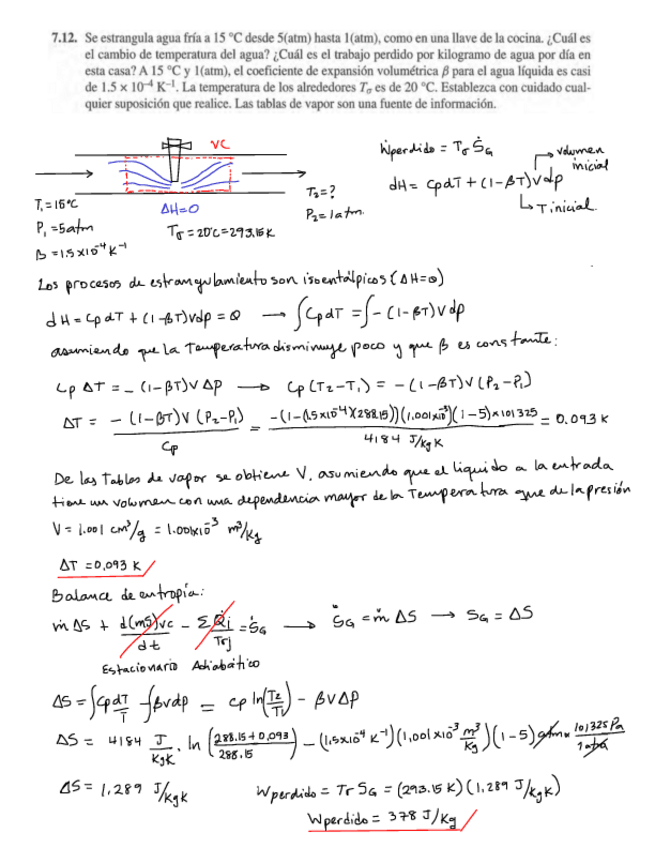 7.12. Se estrangula agua fría a 15 °C desde 5(atm) hasta 1(atm), como en una llave de la cocina. ¿Cuál es
el cambio de temperatura del agua? ¿Cuál es el trabajo perdido por kilogramo de agua por día en
esta casa? A 15 °C y 1(atm), el coeficiente de expansión volumétrica β para el agua líquida es casi
de 1.5 × 10⁻⁴ K⁻¹. La temperatura de los alrededores Tσ es de 20 °C. Establezca con cuidado cual-
quier suposición que realice. Las tablas de vapor son una fuente de información.
VC
Ẇperdido = Tσ ṠG
volumen
inicial
dH = CpdT + (1-βT)Vdp
T inicial.
T₁ = 15°C
P₁ = 5atm
β = 1.5 x 10⁻⁴ K⁻¹
ΔH=0
Tσ = 20°C = 293.15 K
T₂ = ?
P₂ = 1 atm.
Los procesos de estrangulamiento son isoentálpicos (ΔH=0)
dH = CpdT + (1-βT)Vdp = 0 → ∫CpdT = ∫-(1-βT)Vdp
asumiendo que la Temperatura disminuye poco y que β es constante:
Cp ΔT = -(1-βT)V ΔP → Cp(T₂-T₁) = -(1-βT)V(P₂-P₁)
ΔT = -(1-βT)V(P₂-P₁) / Cp = -(1-(1.5x10⁻⁴)(288.15))(1,001x10⁻³)(1-5)x101325 / 4184 J/kg K = 0.093 K
De las Tablas de vapor se obtiene V, asumiendo que el liquido a la entrada
tiene un volumen con una dependencia mayor de la Temperatura que de la presión
V = 1.001 cm³/g = 1.001x10⁻³ m³/kg
ΔT = 0,093 K
Balance de entropía:
ṁ ΔS + d(mS)vc/dt - Σ Q̇j/Tσj = ṠG → ṠG = ṁ ΔS → SG = ΔS
Estacionario Adiabático
ΔS = ∫CpdT/T - ∫βVdp = Cp ln(T₂/T₁) - βVΔP
ΔS = 4184 J/kgK . ln (288.15 + 0,093 / 288.15) - (1,5x10⁻⁴ K⁻¹)(1,001x10⁻³ m³/kg)(1-5) atm x 101325 Pa / 1 atm
ΔS = 1,289 J/kgK
Wperdido = Tσ SG = (293.15 K)(1,289 J/kgK)
Wperdido = 378 J/kg